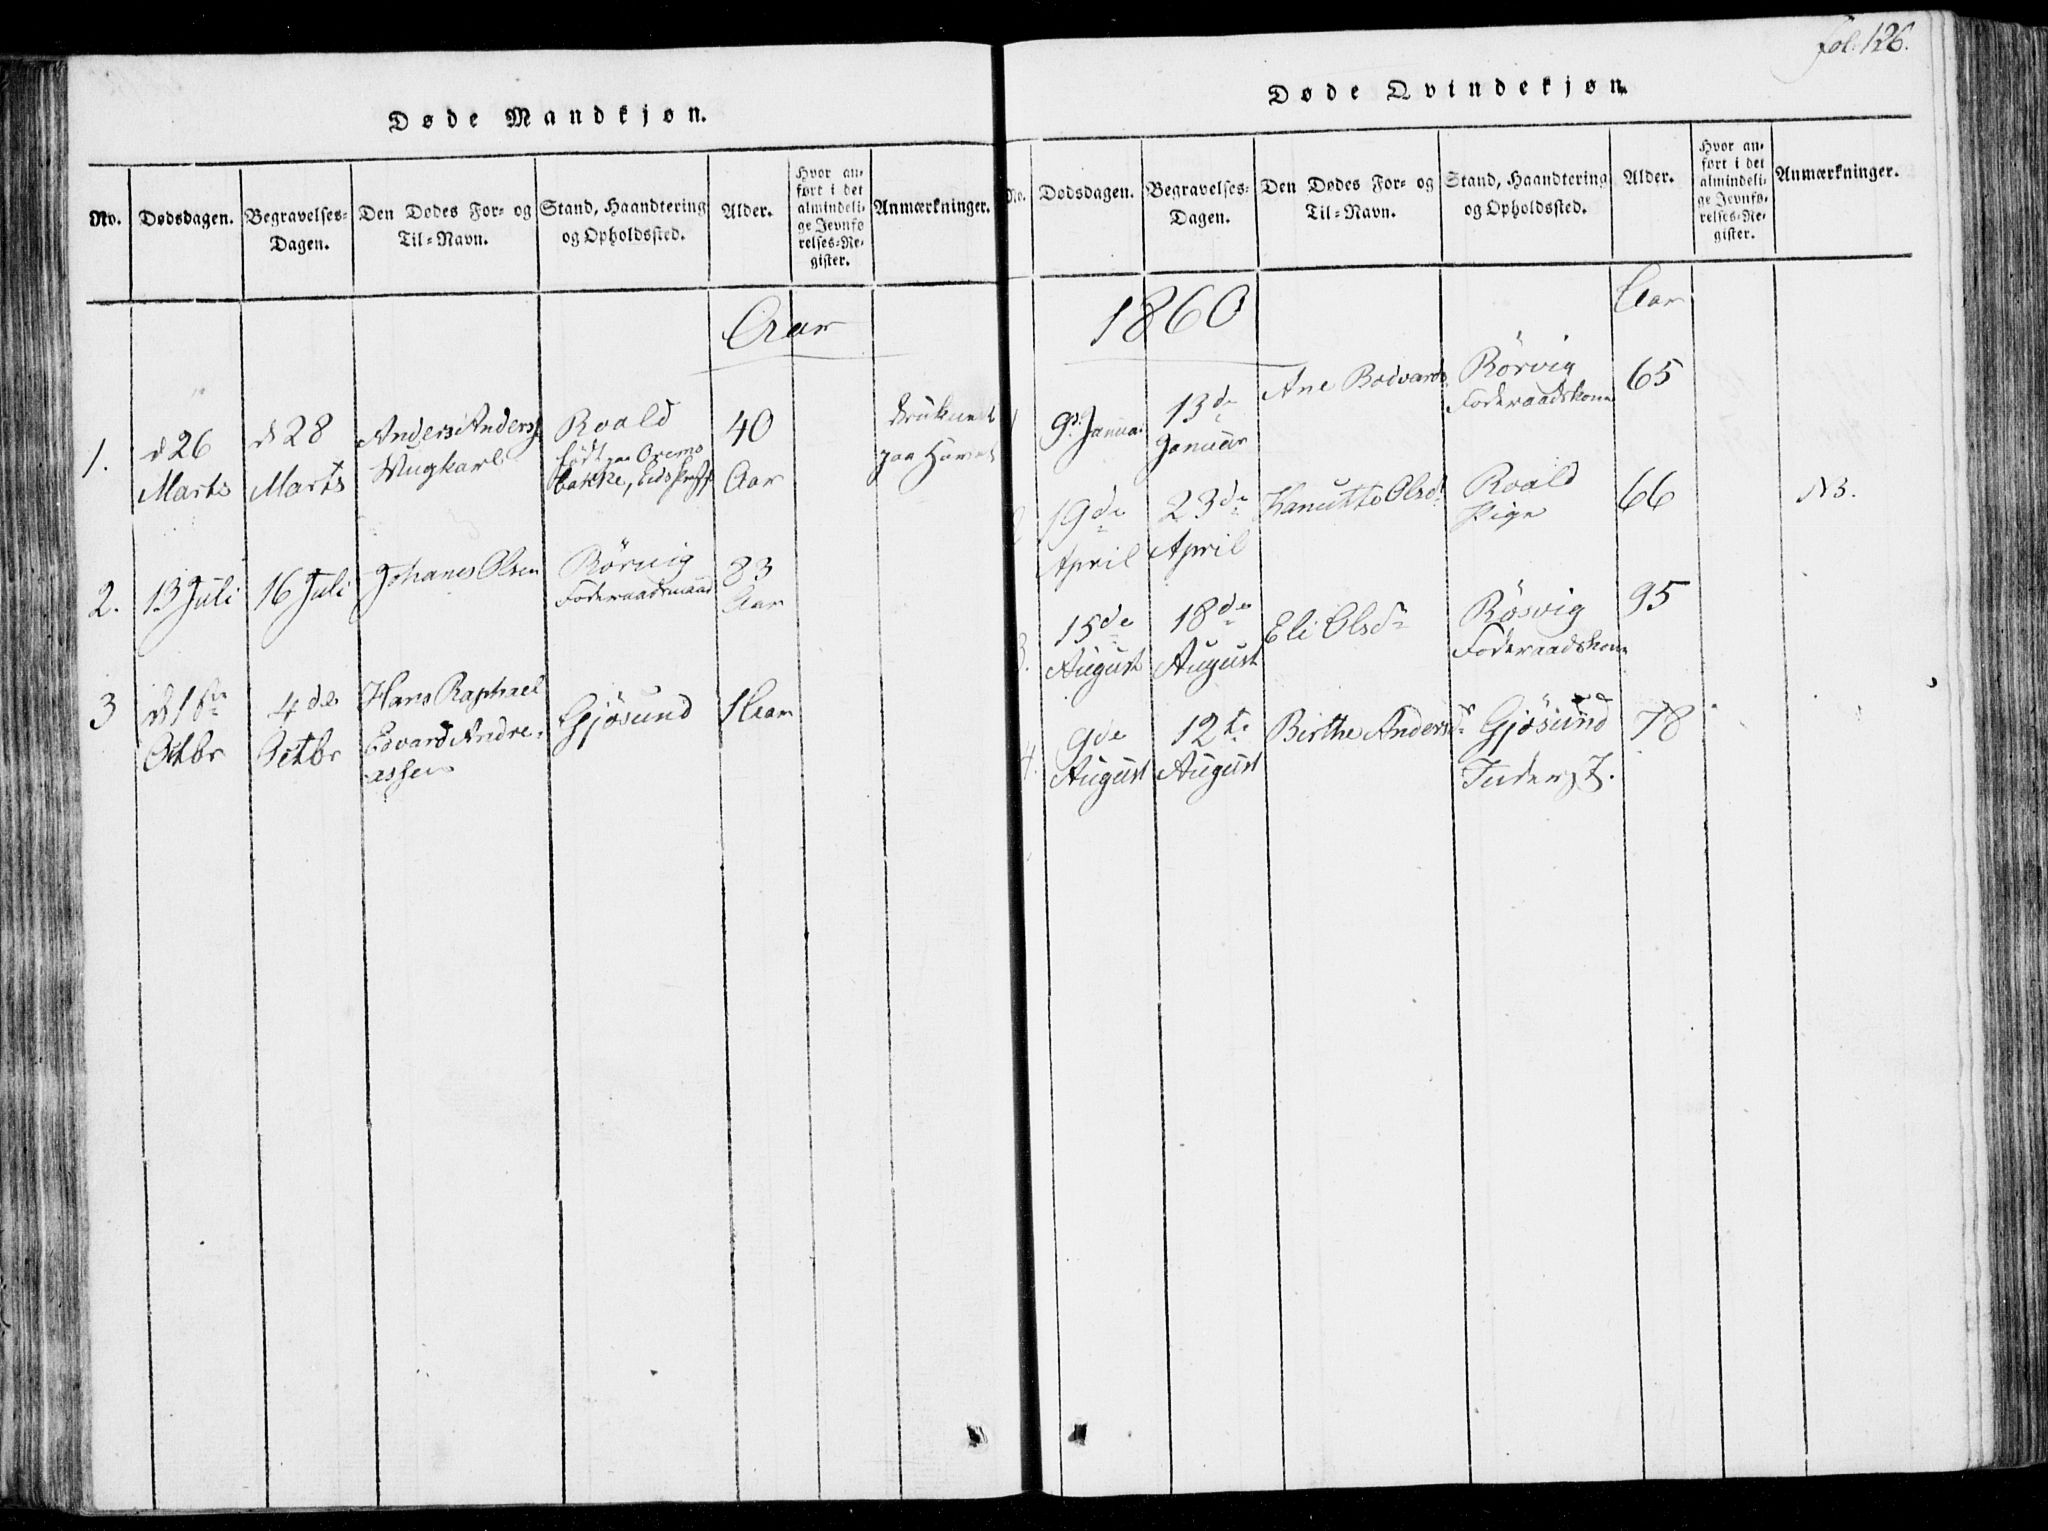 fol. 126.
Døde Mandkjøn.
No.
Dødsdagen.
Begravelses=
Dagen.
Den Dødes For= og
Til=Navn.
Stand, Haandtering
og Opholdssted.
Alder.
Hvor an=
ført i det
almindeli=
ge Jevnfø
relses=Re=
gister.
Anmærkninger.
Aar
1.
d 26
Marts
d 28
Marts
Anders Anders
Ungkarl
Roald
født paa
bakke,
40
Aar
druknet
paa Havet
2.
13 Juli
16 Juli
Johanes Olsen
Rörvig
Föderaadsmand
83
Aar
3
d 1ste
Octbr
4de
Octbr
Hans Raphael
Edvard Andre=
assen
Gjösund
1 Aar
Døde Qvindekjøn.
No.
Dødsdagen.
Begravelses=
Dagen.
Den Dødes For= og
Til=Navn.
Stand, Haandtering
og Opholdssted.
Alder.
Hvor an=
ført i det
almindeli=
ge Jevnfø=
relses=Re=
gister.
Anmærkninger.
1860
Aar
9d Januar
13de
Januar
Ane Bodvards
Rörvig
Föderaadskone
65
19de
April
23de
April
Kanutte Olsd
Roald
Pige
66
NB.
3.
15de
August
18de
August
Eli Olsdr
Rösvig
Föderaadskone
95
4.
9de
August
12te
August
Birthe Andersdr
Gjösund
Inderst.
78